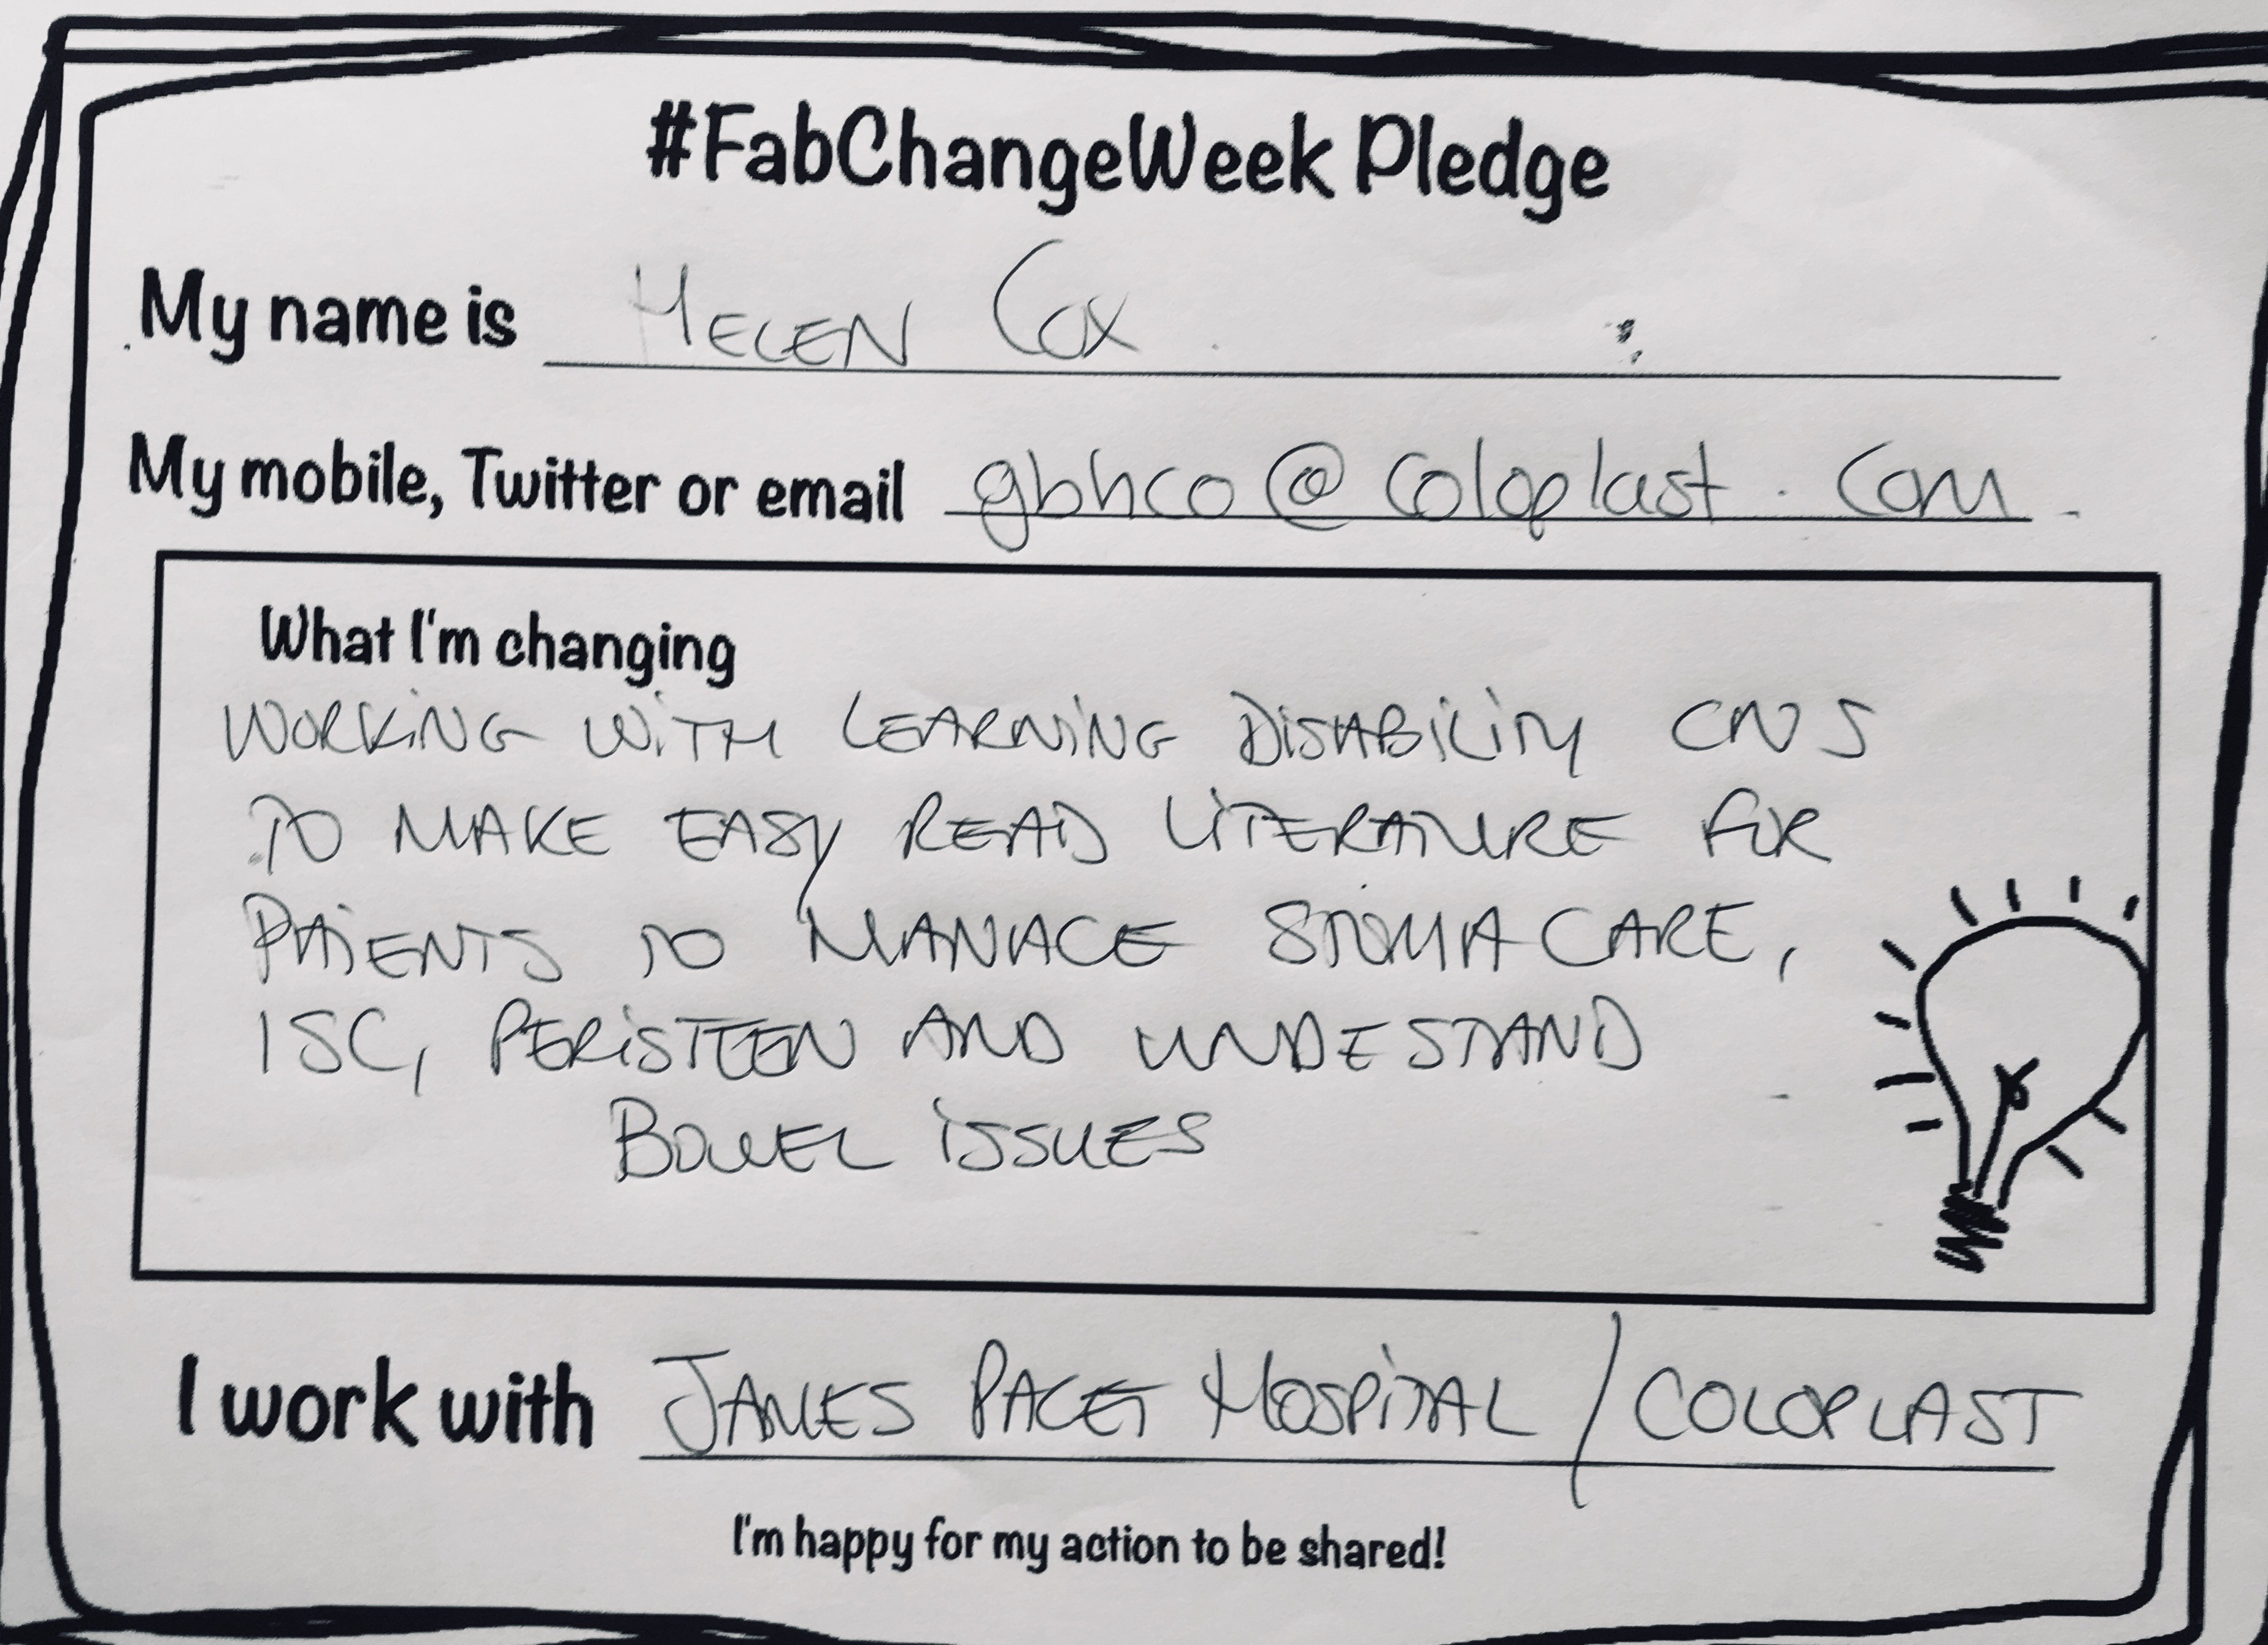 #FabChangeWeek Pledge
My name is HELEN COX
My mobile, Twitter or email gbhco@coloplast.com.
What I'm changing
WORKING WITH LEARNING DISABILITY CNS
TO MAKE EASY READ LITERATURE FOR
PATIENTS TO MANAGE STOMA CARE,
ISC, PERISTEEN AND UNDESTAND
BOWEL ISSUES
I work with JAMES PAGET HOSPITAL / COLOPLAST
I'm happy for my action to be shared!